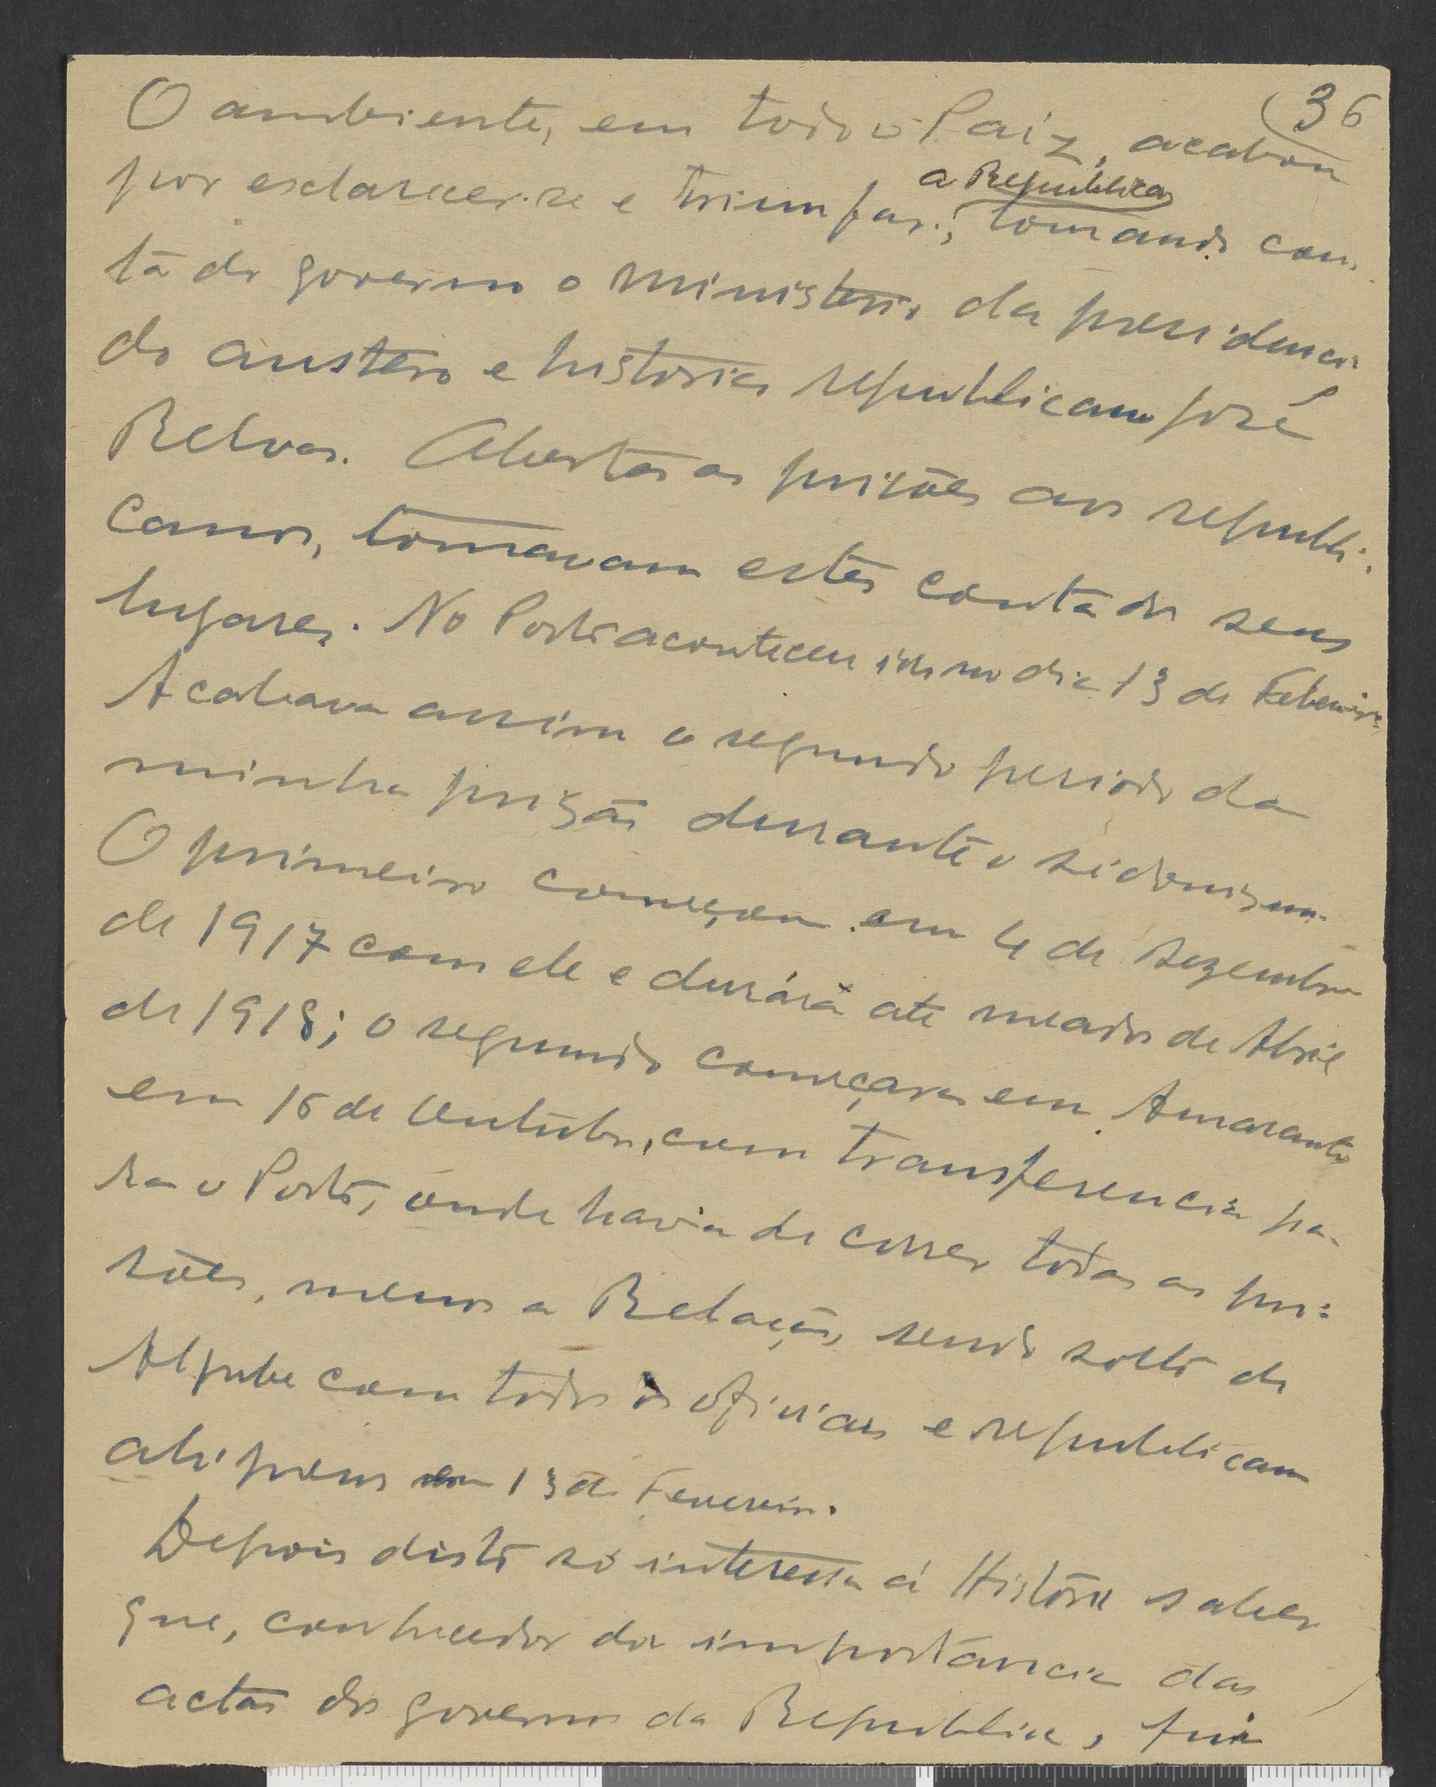 36
O ambiente, em todo o Paiz, acabou
por esclarecer-se e triumfar a Republica, tomando con-
ta do governo o ministerio da presidencia
do austero e historico republicano José
Relvas. Abertas as prisões aos republi-
canos, tomavam estes conta dos seus
lugares. No Porto aconteceu isto no dia 13 de Febereiro.
Acabava assim o segundo periodo da
minha prizão durante o sidonismo.
O primeiro começou em 4 de Dezembro
de 1917 com ele e durára até meados de Abril
de 1918; o segundo começara em Amarante
em 16 de Outubro, com transferencia pa-
ra o Porto, onde havia de correr todas as pri-
sões, menos a Relação, sendo solto do
Aljube com todos os oficiais e republicanos
ali presos em 13 de Fevereiro.
Depois disto só interessa á História saber
que, conhecedor da importancia das
actas do governo da Republica, fui